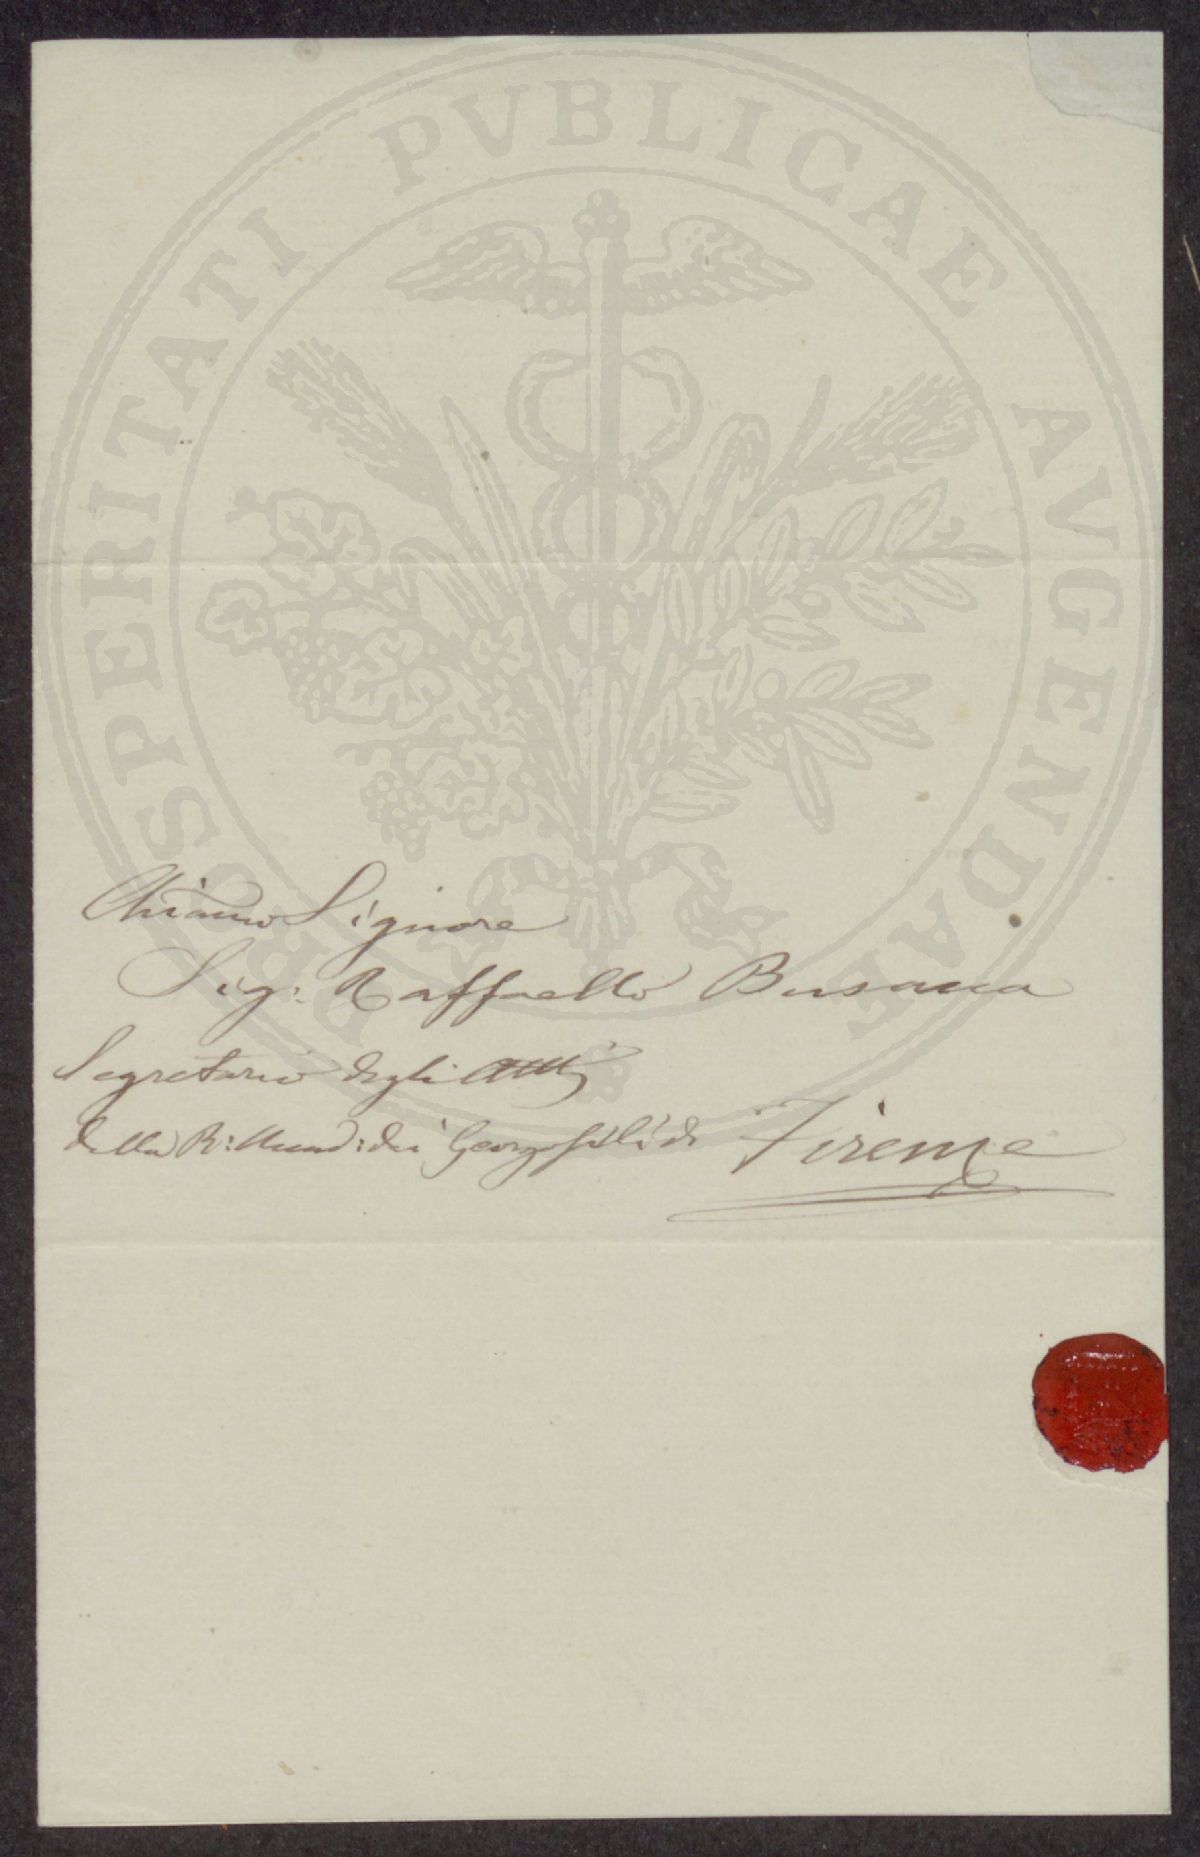 PROSPERITATI PUBLICAE AVGENDAE
Chiarmo Signore
Sig: Raffaello Busacca
Segretario degli Atti
della R: Accad: dei Georgofili di Firenze